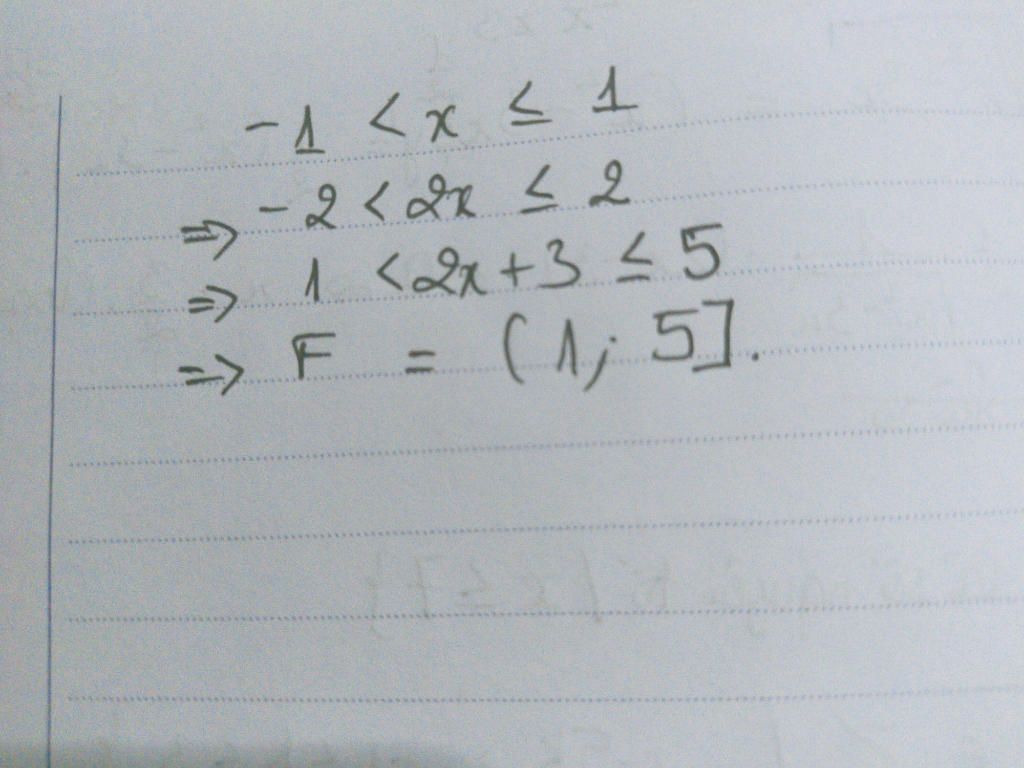 -1 < x ≤ 1
⇒ -2 < 2x ≤ 2
⇒ 1 < 2x + 3 ≤ 5
⇒ F = (1; 5].